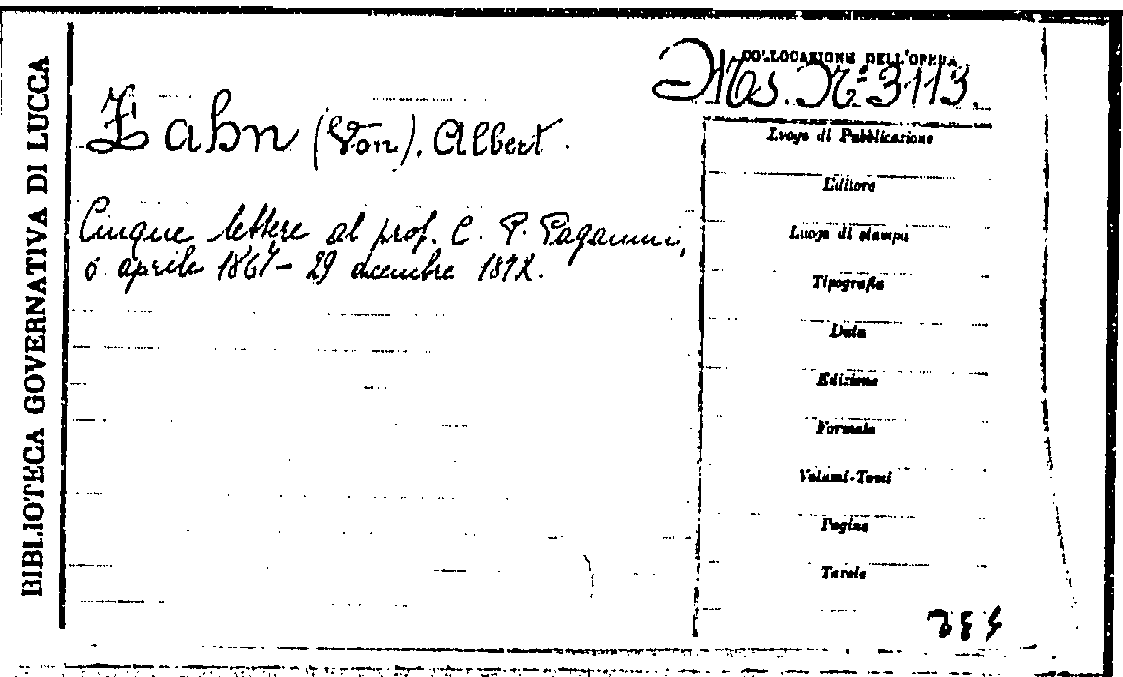 BIBLIOTECA GOVERNATIVA DI LUCCA
COLLOCAZIONE DELL'OPERA
Ms. Nº 3113.
Zahn (Von), Albert.
Cinque lettere al prof. C. P. Paganini,
6 aprile 1867 - 29 dicembre 187
Luogo di Pubblicazione
Editore
Luogo di stampa
Tipografia
Data
Edizione
Formato
Volumi-Tomi
Pagine
Tavole